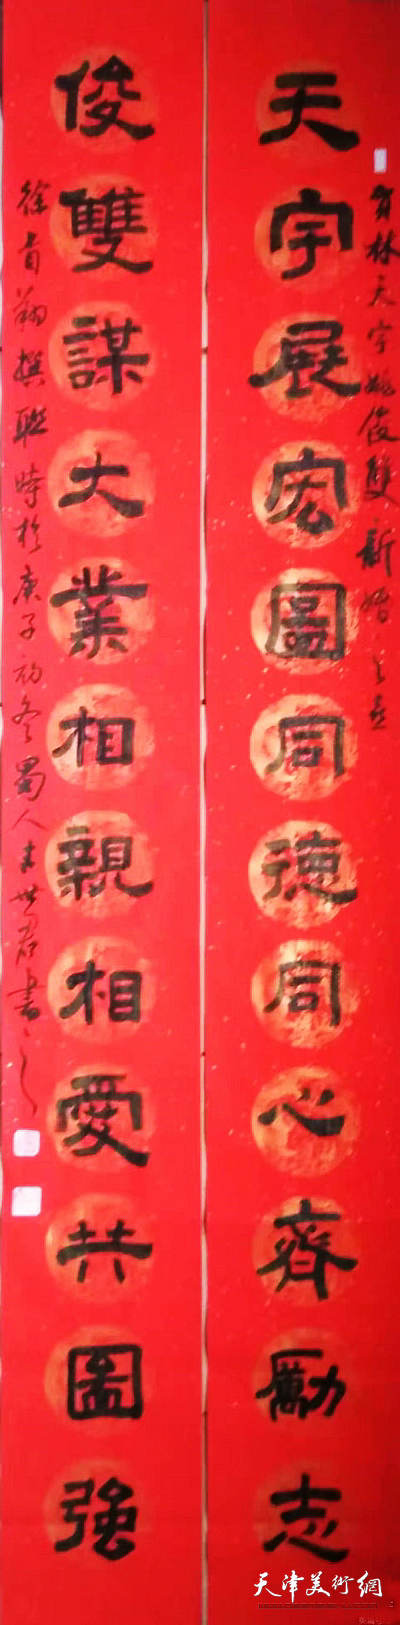 天宇展宏圖同德同心齊勵志
俊雙謀大業相親相愛共圖強
賀林天宇姚俊雙新婚之喜
徐首翔撰聯時於庚子初冬蜀人世君書之
天津美術網